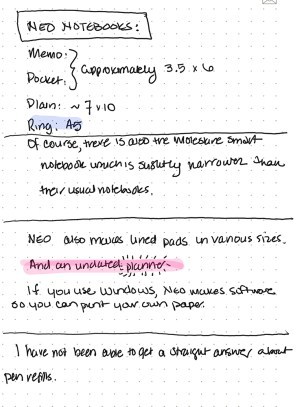 NEO NOTEBOOKS:
Memo:
Pocket: } approximately 3.5 x 6
Plain: ~ 7 x 10
Ring: A5
Of course, there is also the Moleskine Smart
notebook which is slightly narrower than
their usual notebooks.
NEO also makes lined pads in various sizes.
And an undated planner
If you use Windows, Neo makes software
so you can print your own paper.
I have not been able to get a straight answer about
pen refills.